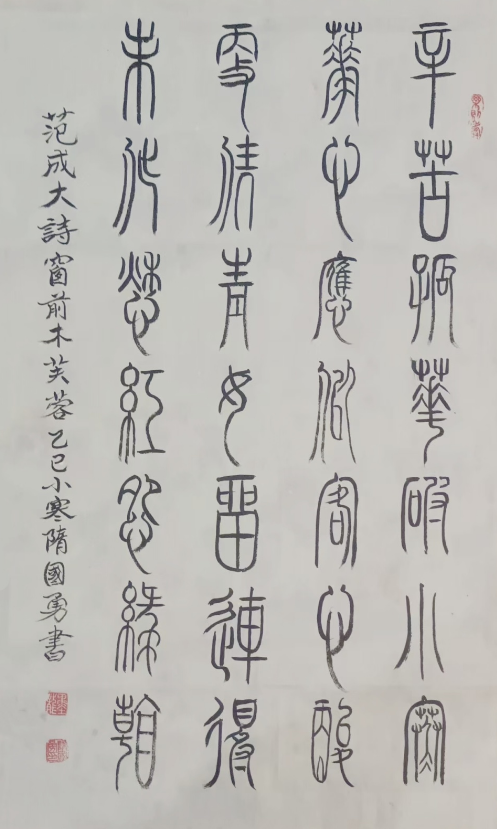 辛苦孤華破小寒
華心應似客心酸
更憑青女留連得
未作愁紅怨綠看
范成大詩窗前木芙蓉乙巳小寒隋國勇書